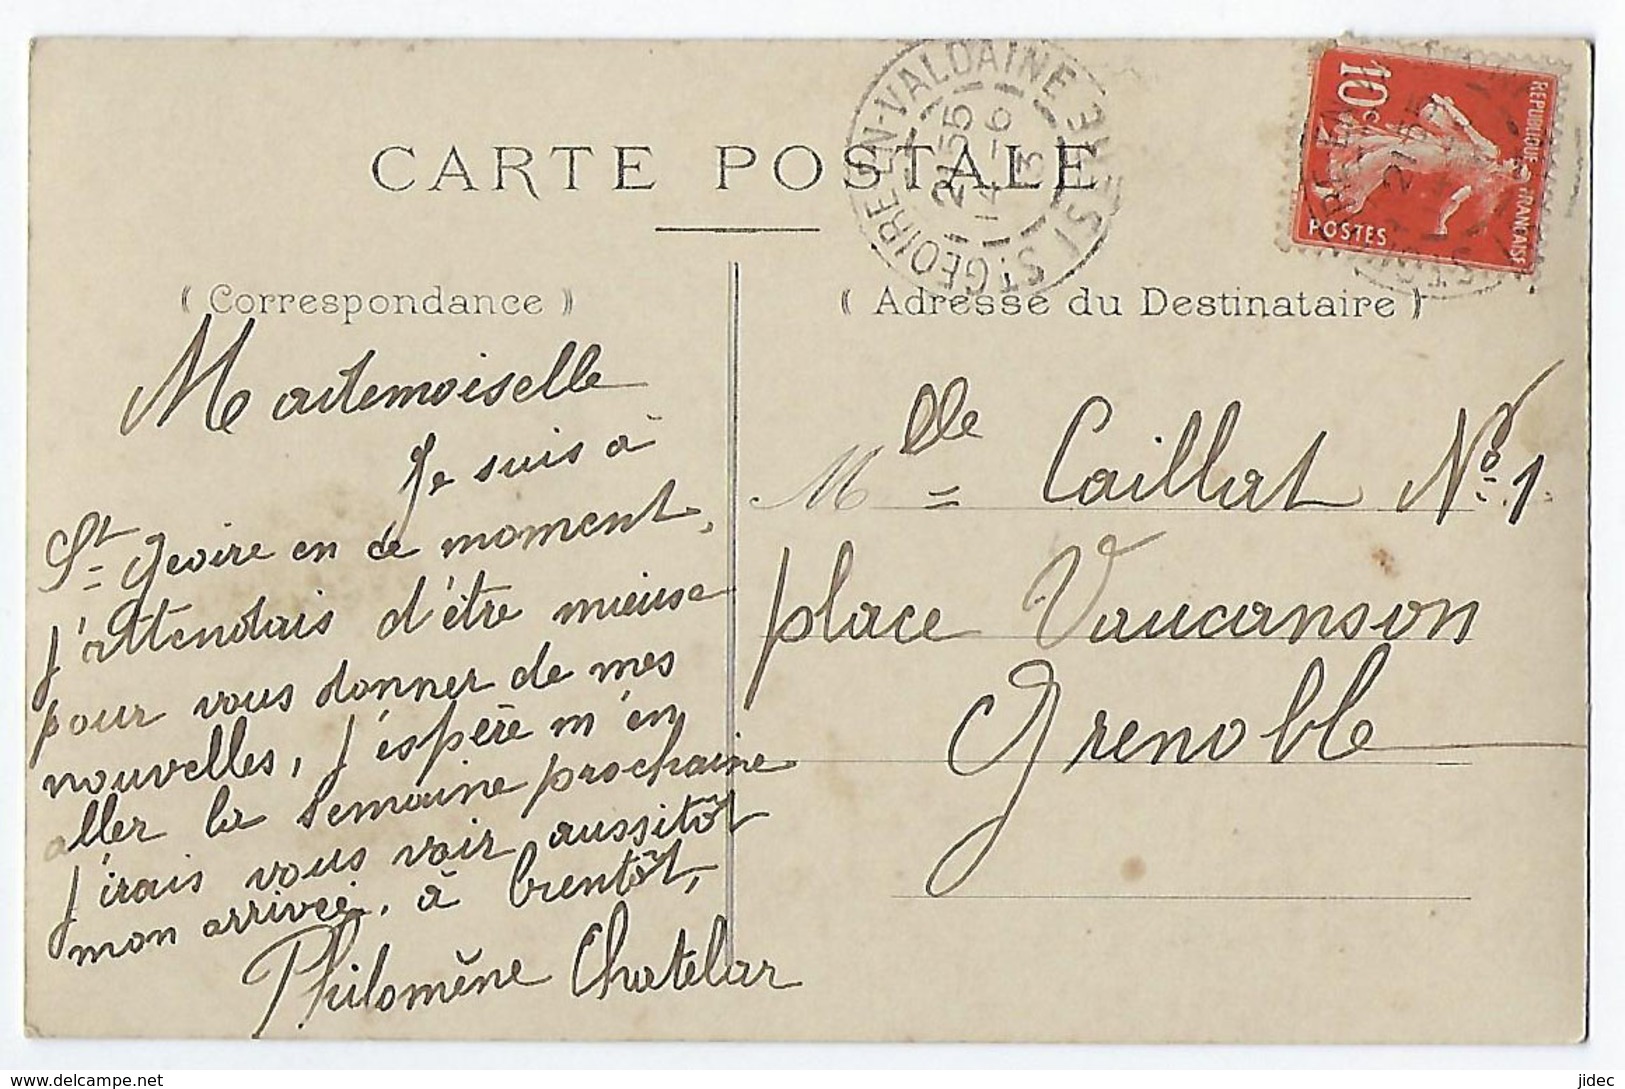 CARTE POSTALE
ST GEOIRE-EN-VALDAINE
ISERE
21 55
14 -6
13
10c
REPUBLIQUE FRANCAISE
POSTES
( Correspondance )
Mademoiselle
Je suis à
St Geoire en ce moment,
j'attendais d'être mieuse
pour vous donner de mes
nouvelles, j'espère m'en
aller la semaine prochaine
j'irais vous voir aussitôt
mon arrivée, à bientôt,
Philomène Chatelar
( Adresse du Destinataire )
Mlle Caillat No 1
place Vaucanson
Grenoble
jidec